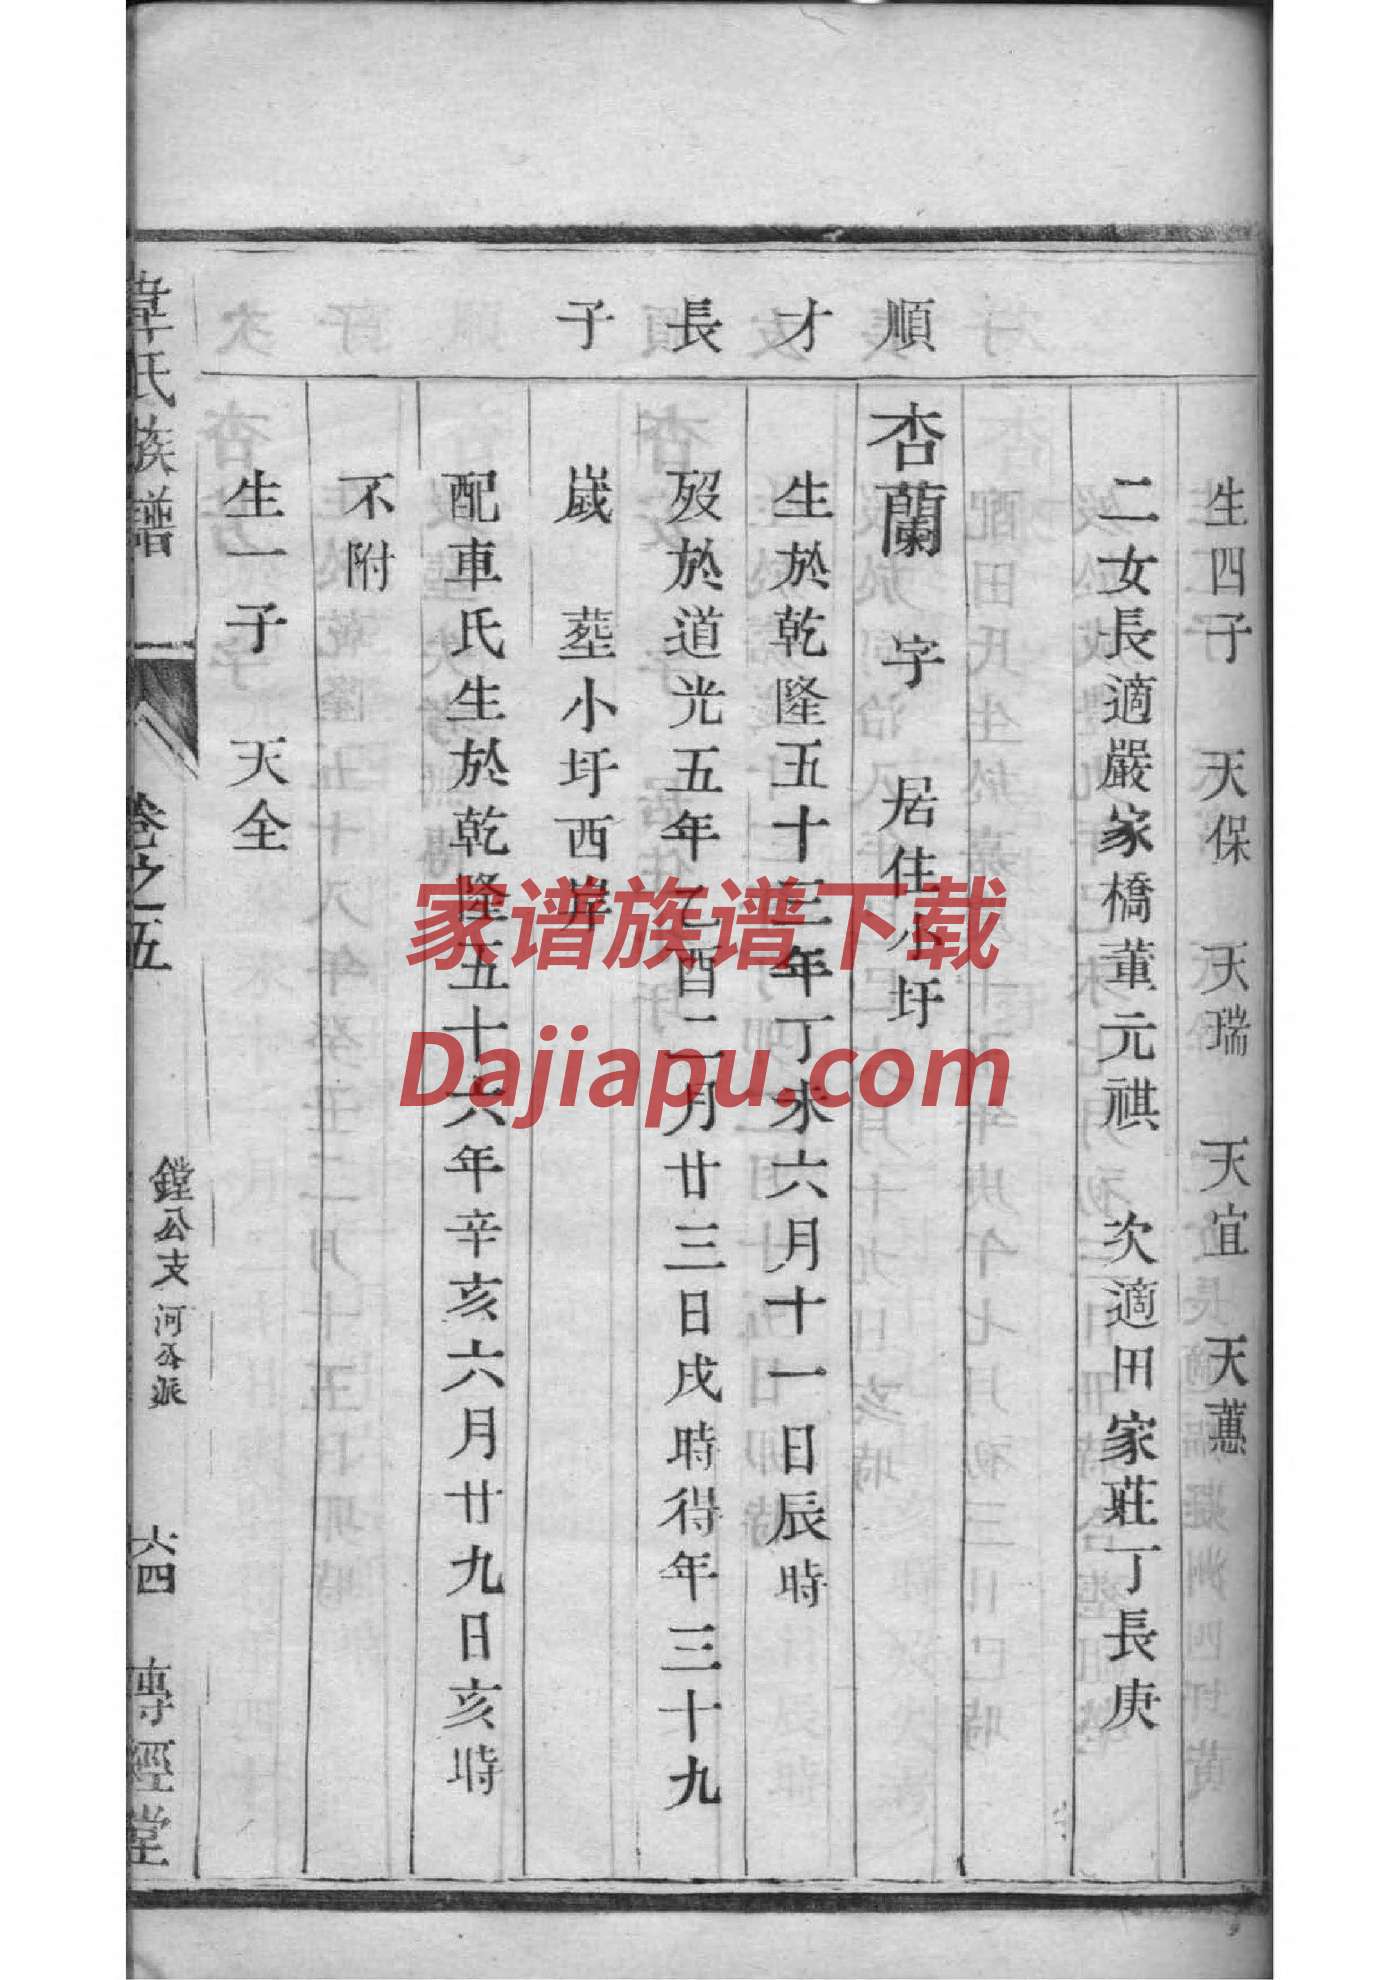 生四子　天保　天瑞　天宜　天蕙
二女長適嚴家橋董元祺　次適田家莊丁長庚
順才長子
杏蘭　字　居住小圩
生於乾隆五十三年丁未六月十一日辰時
歿於道光五年乙酉二月廿三日戌時得年三十九
嵗　葬小圩西岸
配車氏生於乾隆五十六年辛亥六月廿九日亥時
不附
生一子　天全
韋氏族譜　卷之五　鏜公支河公派　六四　傳經堂
家谱族谱下载
Dajiapu.com